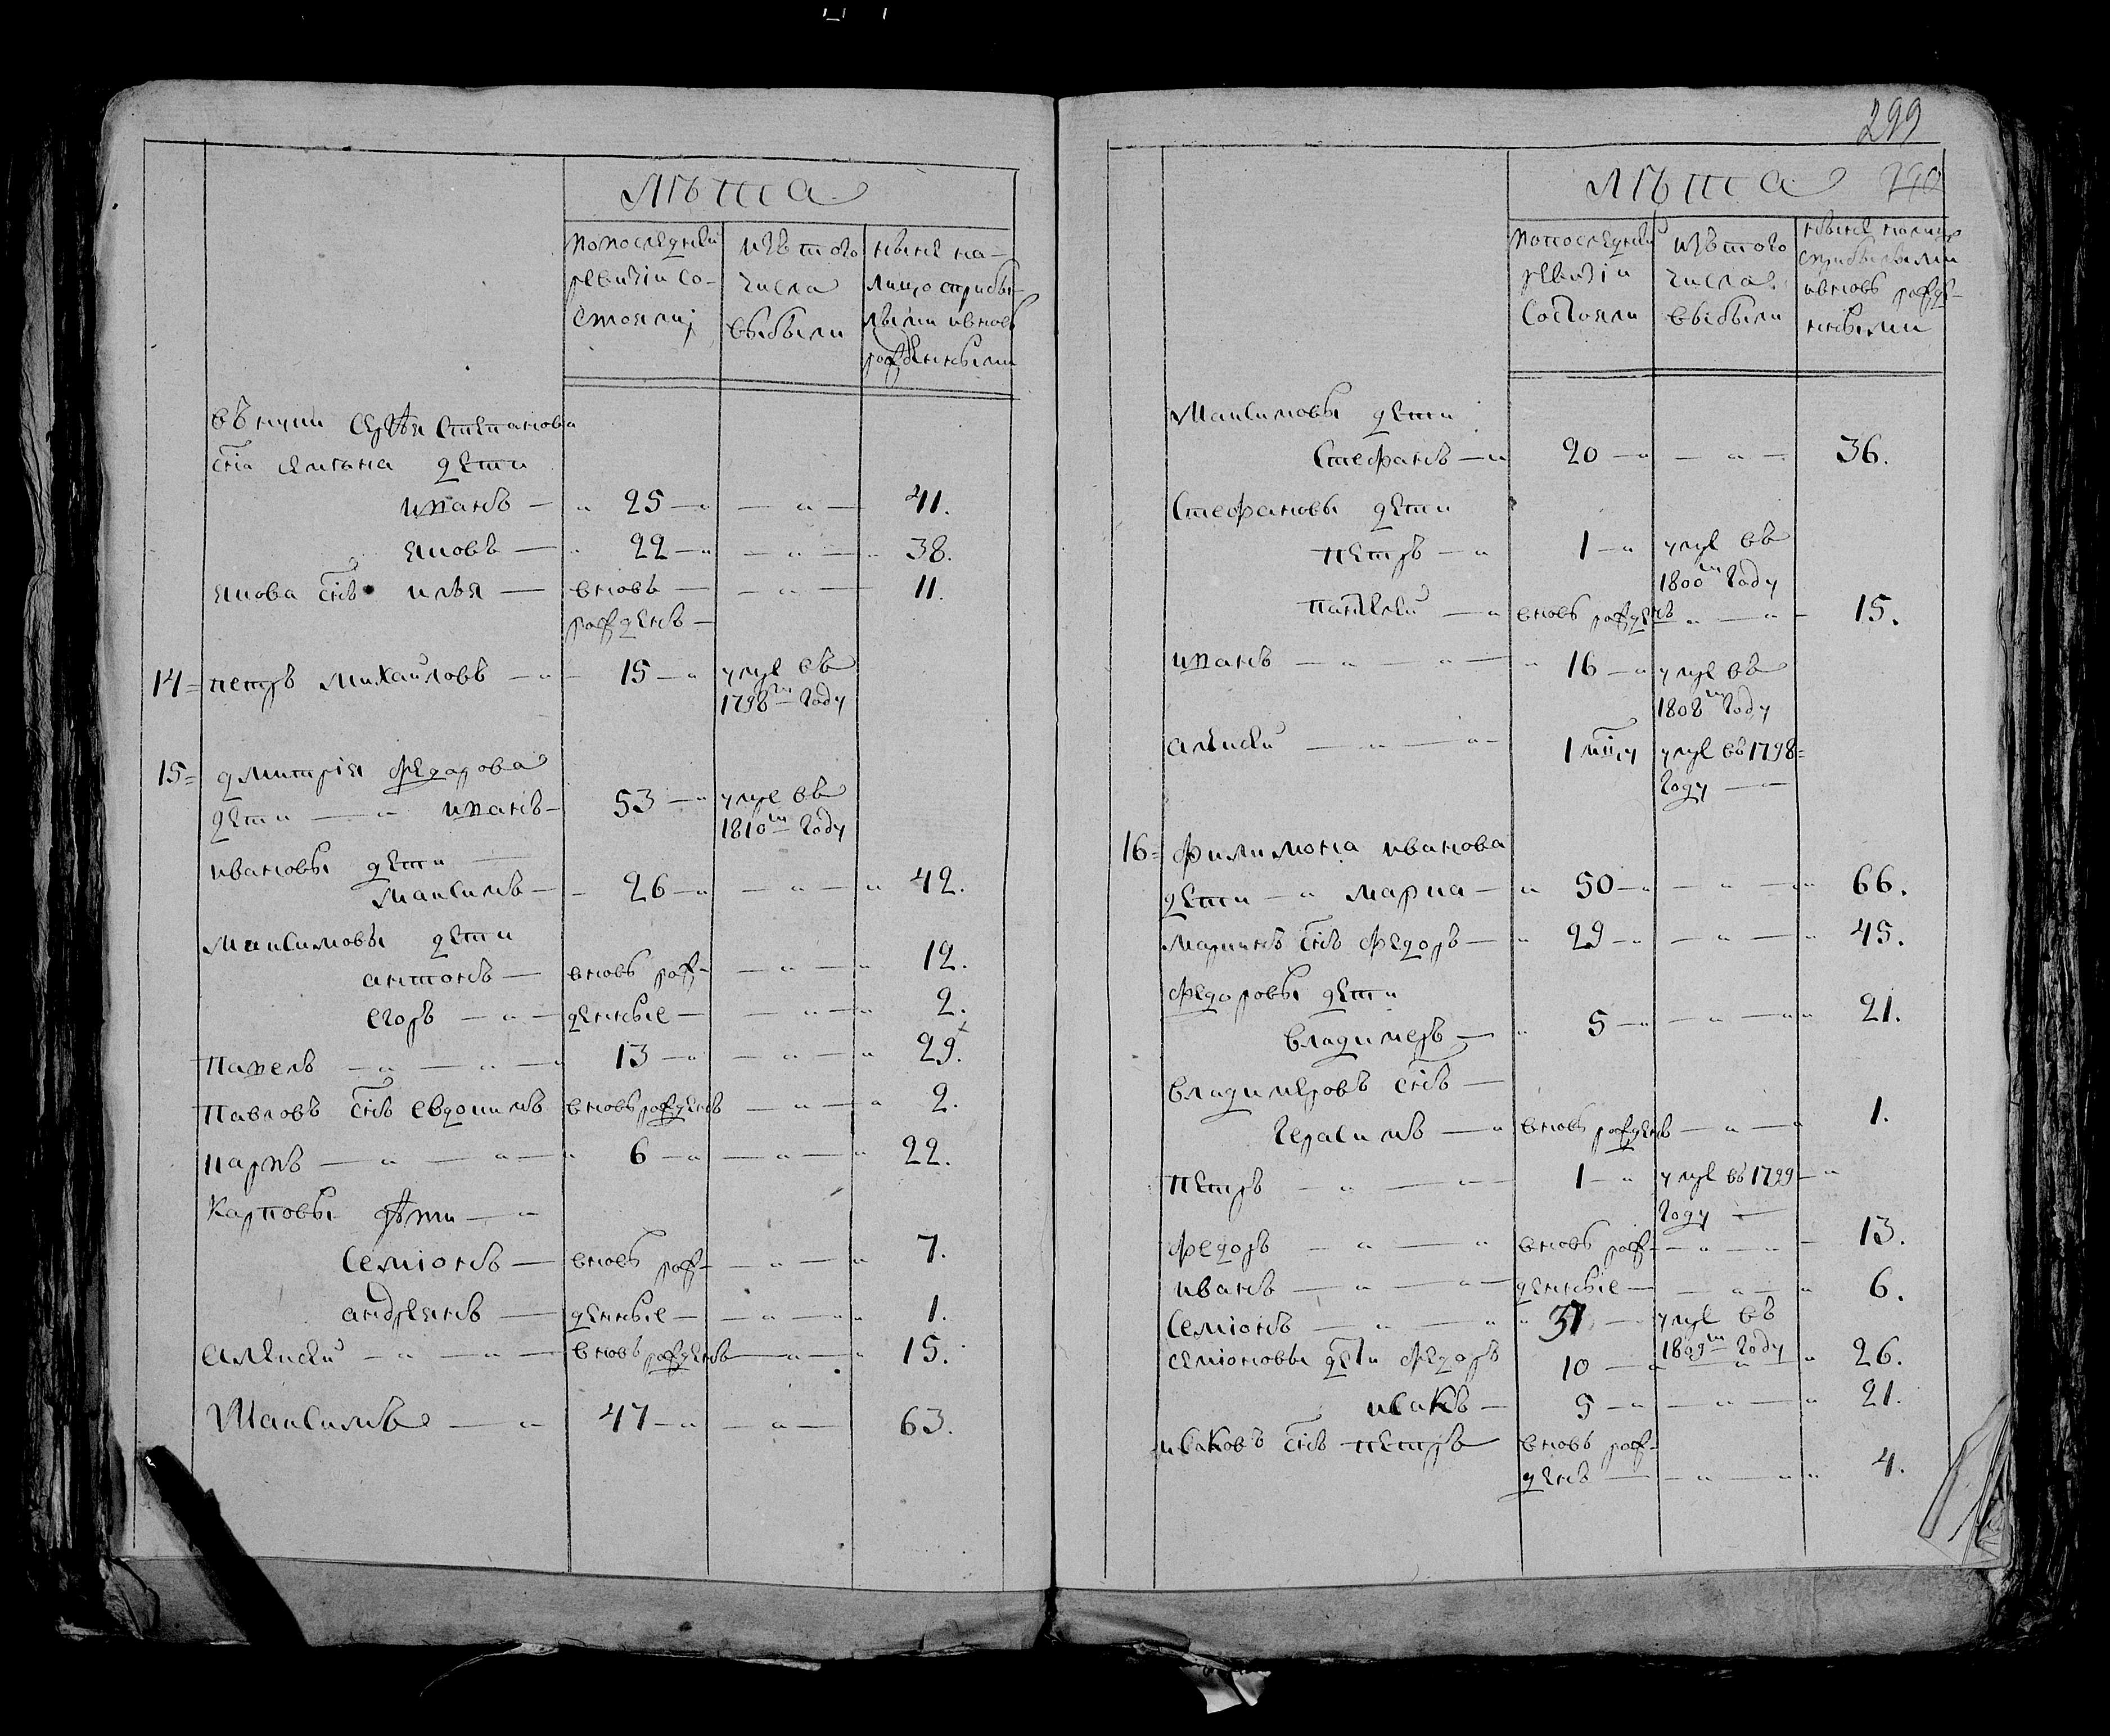 лѣта
попоследней
ревизiи со-
стояли
изъ того
числа
выбыли
ныне на-
лицо сприбы-
лыми ивновь
рожденными
внуки Сергѣя Степанова
сна
дети
иванъ — " 25 — " — " — 41.
яковъ — " 22 — " — " — " 38.
якова снъ илья — вновь — — " — 11.
рожденъ —
14= петръ михайловъ — " — 15 — " умре въ
1798м году
15= дмитрiя федарова
дети — " иванъ — 53 — " умре въ
1810м году
ивановы дети —
максимъ — — 26 — " — " — " 42.
максимовы дети
антонъ — вновь рож- — " — " 12.
егоръ — " — денные — — " — " 2.
павелъ — " — " — " 13 — " — " — " 29.
павловъ снъ евдокимъ вновь рожденъ — " — " 2.
карпъ — " — " — " 6 — " — " — " 22.
Карповы дѣти — "
семiонъ — вновь рож- — " — " 7.
андреянъ — денные — — " — " 1.
алексей — " — " — вновь рожденъ — " — " 15.
Максимъ — " 47 — " " — 63.
299
лѣта
попоследней
ревизiи
состояли
изъ того
числа
выбыли
ныне налицо
сприбылыми
ивновь рожде-
нными
максимовы дети
стефанъ — " 20 — " — " — 36.
стефановы дети
петръ — " 1 — " умре въ
1800м году
пантелей — " вновь рожденъ " — " — 15.
иванъ — " — " — " 16 — " умре въ
1808м году
алексей — " — " — 1 умре въ 1798=
году — "
16= филимона иванова
дети — " марка — " 50 — " — " — " 66.
маркинъ снъ федоръ — " 29 — " — " — " 45.
федоровы дети
владимеръ — " 5 — " — " — " 21.
владимеровъ снъ —
герасимъ — " вновь рожденъ — " — " 1.
петръ — " — " — 1 — " умре въ 1799 — "
году —
федоръ — " — " вновь рож- — " — " — 13.
иванъ — " — " — денные — — " — " 6.
семiонъ — " — " " 31 — умре въ
1809м году
семiоновы дети федоръ 10 — " " " 26.
исакъ — 5 — " — " — " 21.
исаковъ снъ петръ вновь рож-
денъ — — " — " 4.